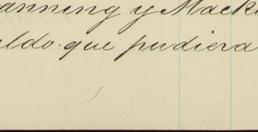 anning y Mack
eldo que pudiera